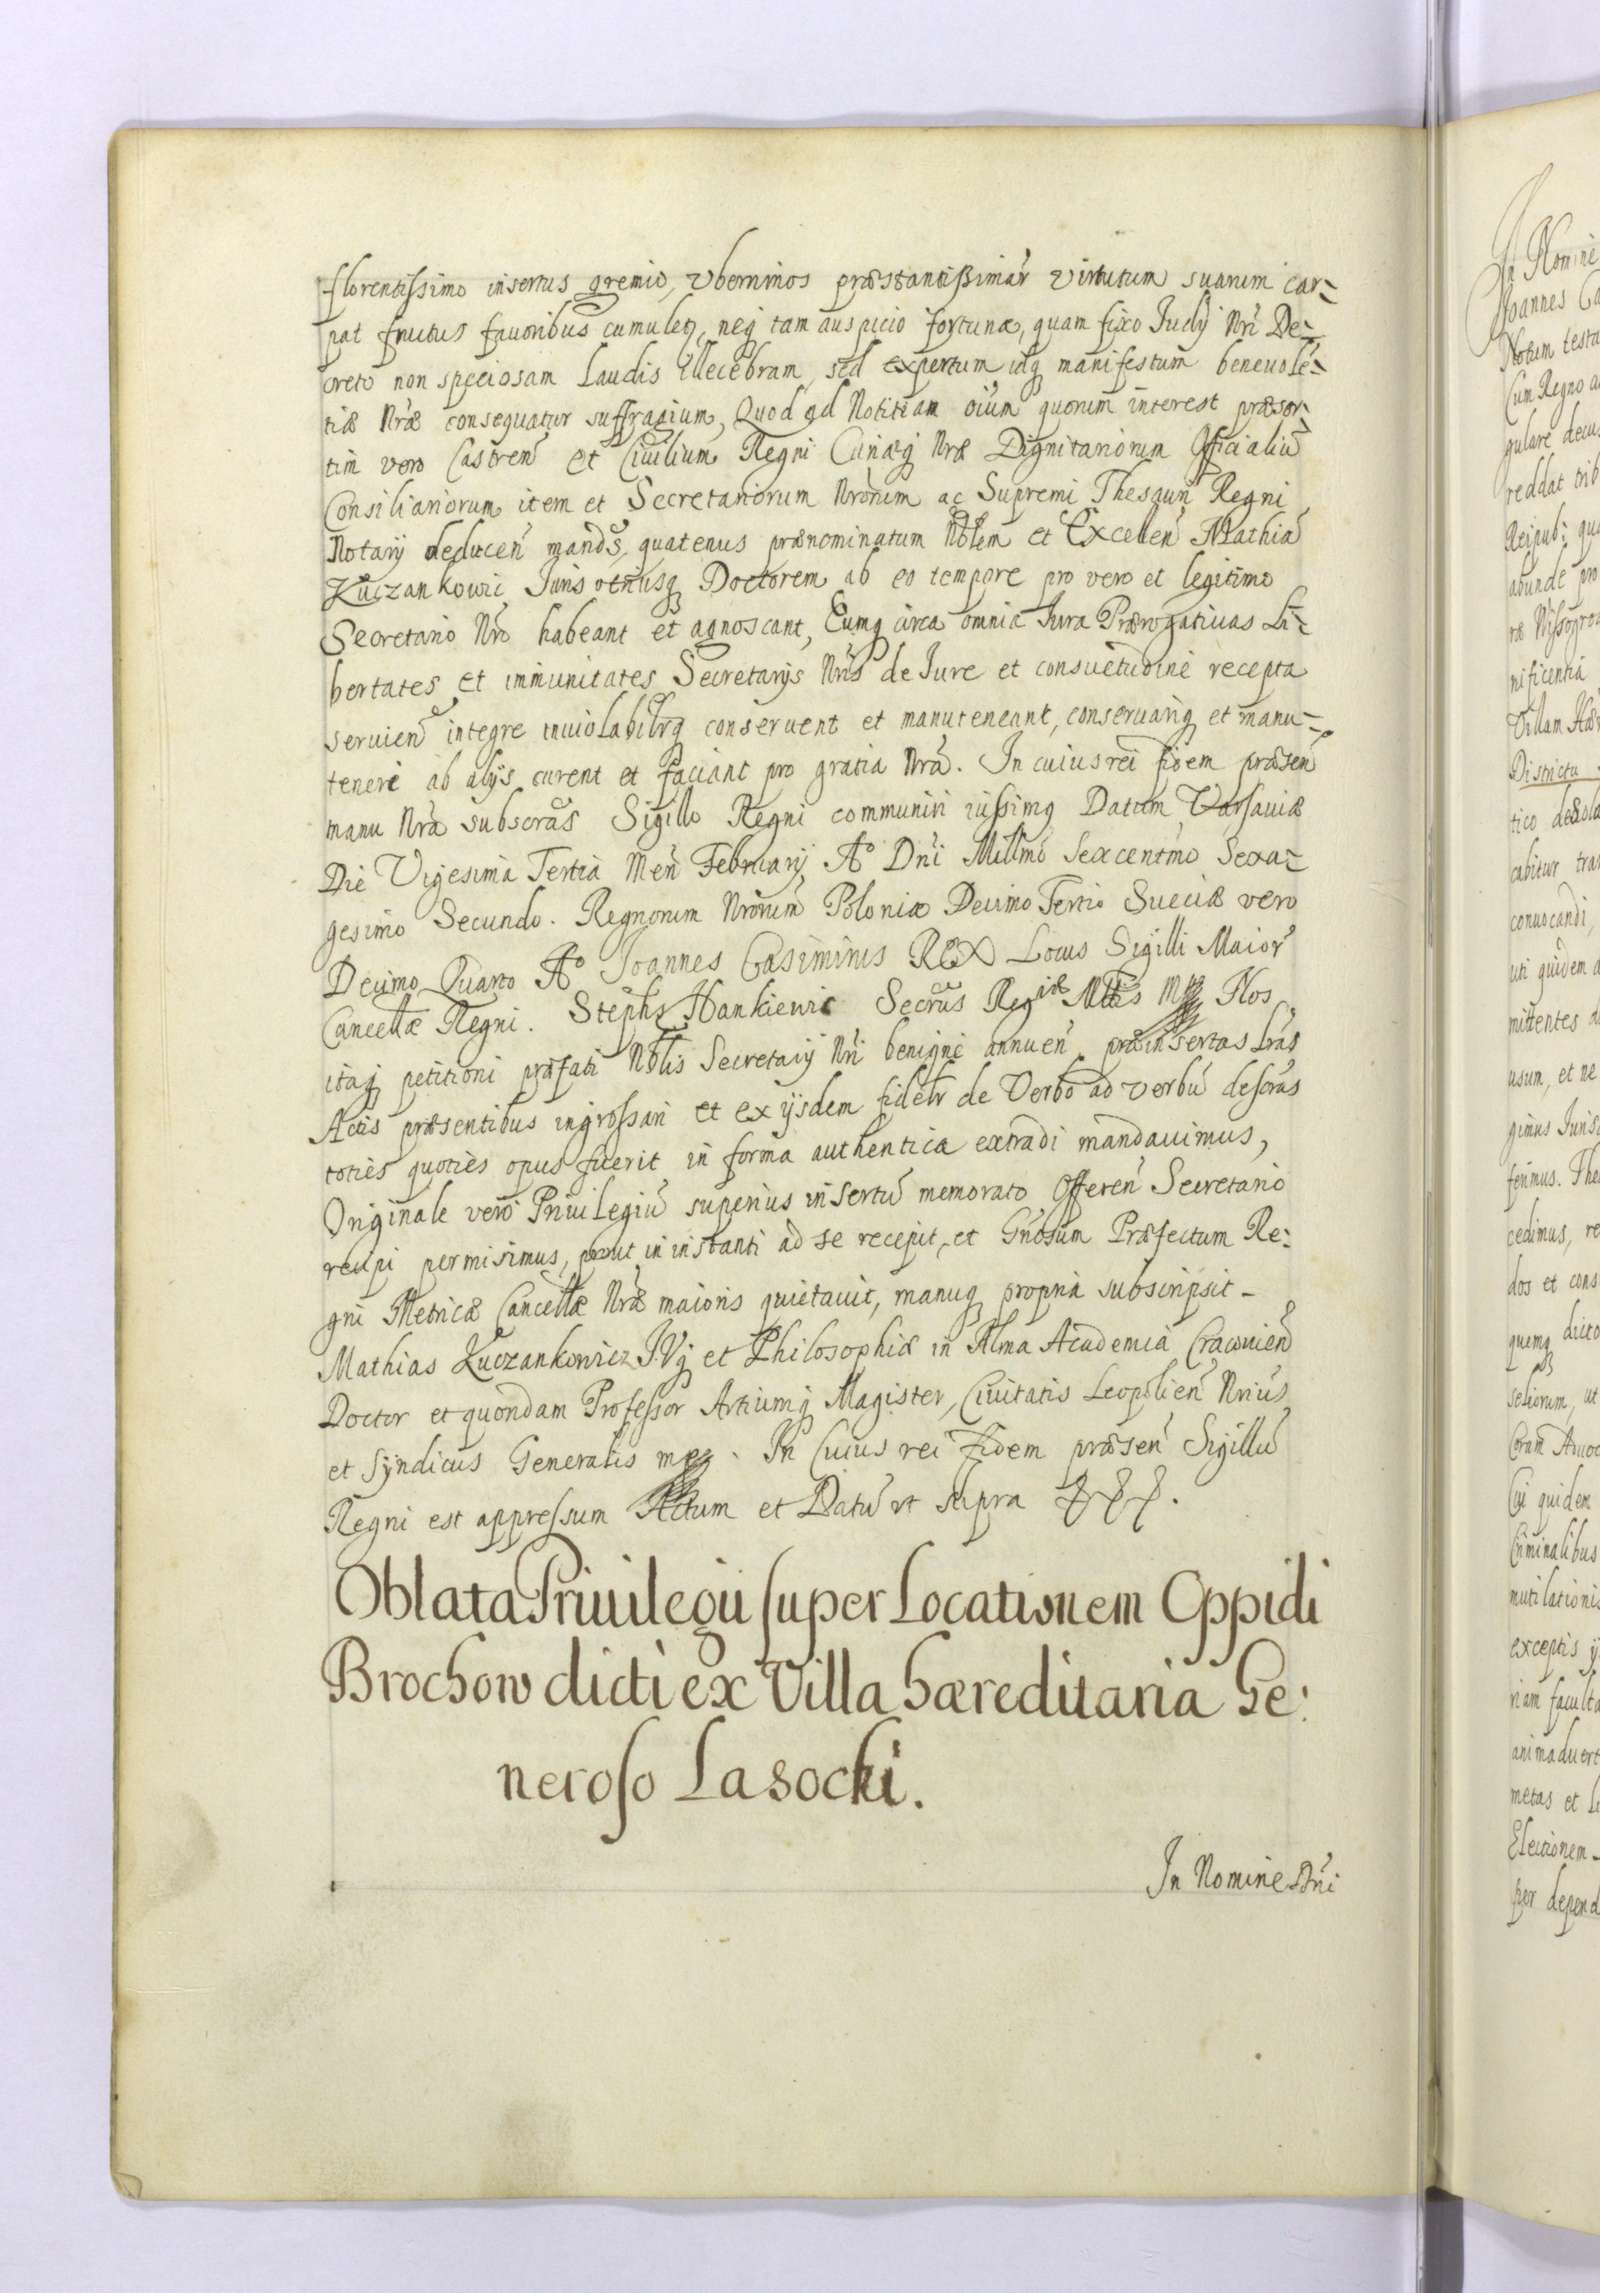 florentissimo insertus gremio, vberrimos præstantissimar̃ virtutum suarum car-
pat fructus fauoribus cumuletq, neq tam auspicio fortunæ, quam fixo Iudÿ Nr̃i De-
creto non speciosam Laudis illecebram, sed expertum idq manifestum beneuolẽ-
tiæ Nræ consequatur suffragium, Quod ad Notitiam oĩum quorum interest præser-
tim vero Castren̄ et Ciuilium Regni Curiæq Nræ Dignitariorum Officialiũ
Consiliariorum item et Secretariorum Nrorum ac Supremi Thesauri Regni
Notarÿ deducen̄ mandãs, quatenus prænominatum Nblem et Excellen̄ Mathiã
Kuczankowic Iuris vtriusq Doctorem ab eo tempore pro vero et legitimo
Secretario Nro habeant et agnoscant, Eumq circa omnia Iura Prærogatiuas Li-
bertates et immunitates Secretarÿs Nris de Iure et consuetudine recepta
seruien̄ integre inuiolabilrq conseruent et manuteneant, conseruariq et manu-
teneri ab alÿs curent et faciant pro gratia Nrã. In cuius rei fidem præsen̄
manu Nrã subscrãs Sigillo Regni communiri iussimq Datum Varsauiæ
Die Vigesima Tertia Men̄ Februarÿ Aº Dñi Millmo Sexcentmo Sexa-
gesimo Secundo. Regnorum Nrorum Poloniæ Decimo Tertio Sueciæ vero
Decimo Quarto Aº Ioannes Casimirus REX Locus Sigilli Maior̃
Cancellæ Regni. Stephs Hankiewic Secrũs Regiæ Mttis mp Nos
itaq petitioni præfati Nblis Secretarÿ Nri benigne annuen̄ præinsertas Lras
Actis præsentibus ingrossari et ex ÿsdem fidelr de Verbo ad verbũ descrãs
toties quoties opus fuerit in forma authentica extradi mandauimus,
Originale vero Priuilegiũ superius insertũ memorato Offeren̄ Secretario
recipi permisimus, prout in instanti ad se recepit, et Gnosum Præfectum Re-
gni Metricæ Cancellæ Nræ maioris quietauit, manuq propria subscripsit -
Mathias Kuczankowicz I.Vq et Philosophiæ in Alma Academia Cracouien̄
Doctor et quondam Professor Artiumq Magister, Ciuitatis Leopolien̄ Nrius
et Syndicus Generalis mp. In Cuius rei fidem præsen̄ Sigillũ
Regni est appressum Actum et Datũ vt supra
Oblata Priuilegii super Locationem Oppidi
Brochow dicti ex Villa hæreditaria Ge:
neroso Lasocki.
In Nomine Dñi